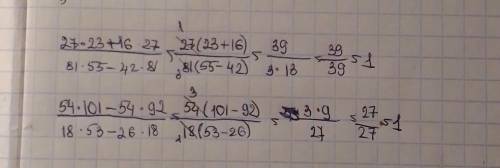 (27·23+16·27)/(81·55−42·81) = (27(23+16))/(81(55−42)) = 39/(3·13) = 39/39 = 1
(54·101−54·92)/(18·53−26·18) = (54(101−92))/(18(53−26)) = (3·9)/27 = 27/27 = 1